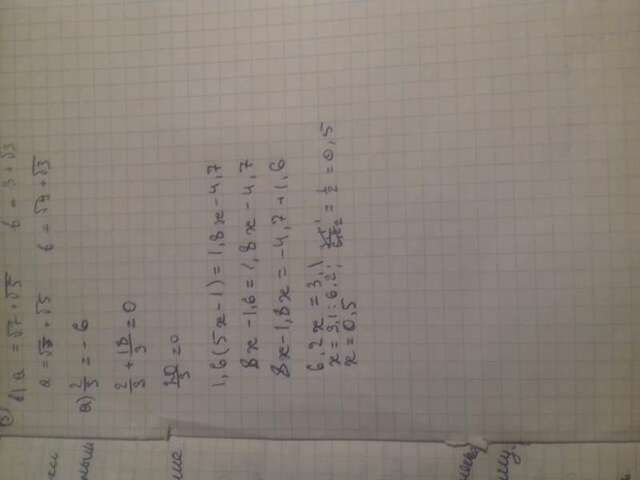 в) a = √7 + √5 b = 3 + √3
a = √7 + √5 b = √9 + √3
a) 2/3 = -6
2/3 + 18/3 = 0
20/3 = 0
1,6(5x-1) = 1,8x-4,7
8x-1,6 = 1,8x-4,7
8x-1,8x = -4,7+1,6
6,2x = 3,1
x = 3,1:6,2; = 1/2 = 0,5
x = 0,5